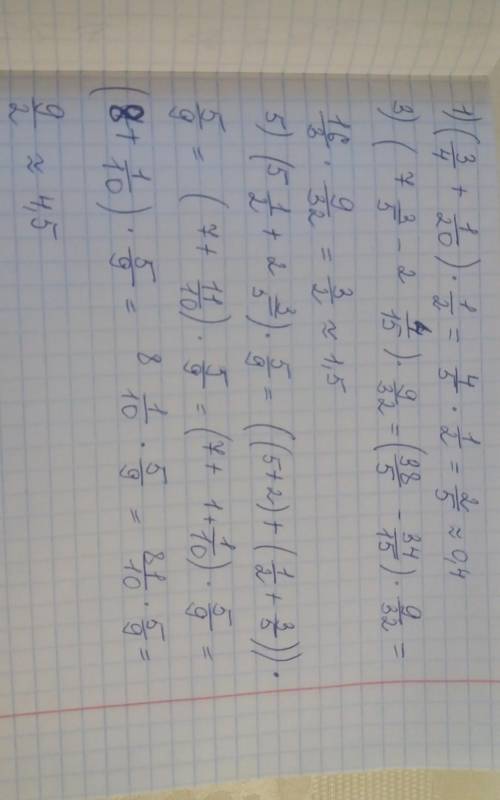 1) (3/4 + 1/20) · 1/2 = 4/5 · 1/2 = 2/5 ≈ 0,4
3) (7 3/5 - 2 4/15) · 9/32 = (38/5 - 34/15) · 9/32 =
16/3 · 9/32 = 3/2 ≈ 1,5
5) (5 1/2 + 2 3/5) · 5/9 = ((5+2) + (1/2 + 3/5)) ·
5/9 = (7 + 11/10) · 5/9 = (7 + 1 + 1/10) · 5/9 =
(8 + 1/10) · 5/9 = 8 1/10 · 5/9 = 81/10 · 5/9 =
9/2 ≈ 4,5